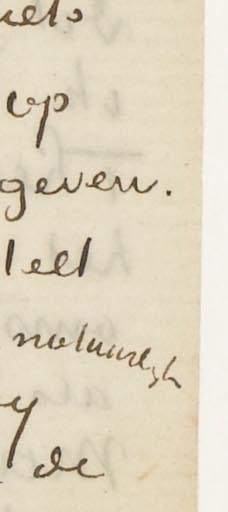 iets
op
geven.
natuurlijk
de